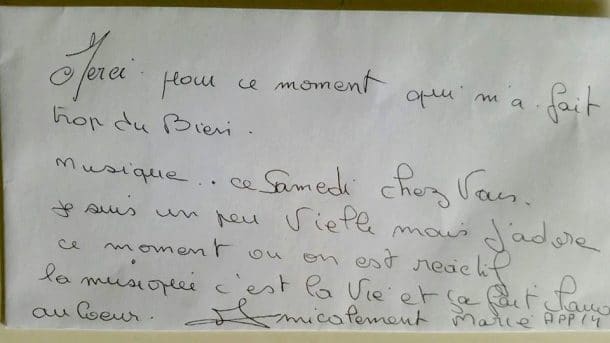 Merci. pour ce moment qui m'a. fait
trop du Bien.
musique.. ce Samedi chez Vous.
Je suis un peu Vielle mais j'adore
ce moment ou on est reactif
la musique c'est la Vie et ça fait chaud
au Coeur. Amicalement Marie APP14